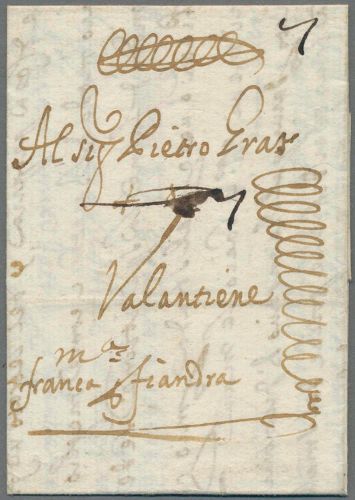 Al sig Pietro Gras
Valantiene
franca p fiandra